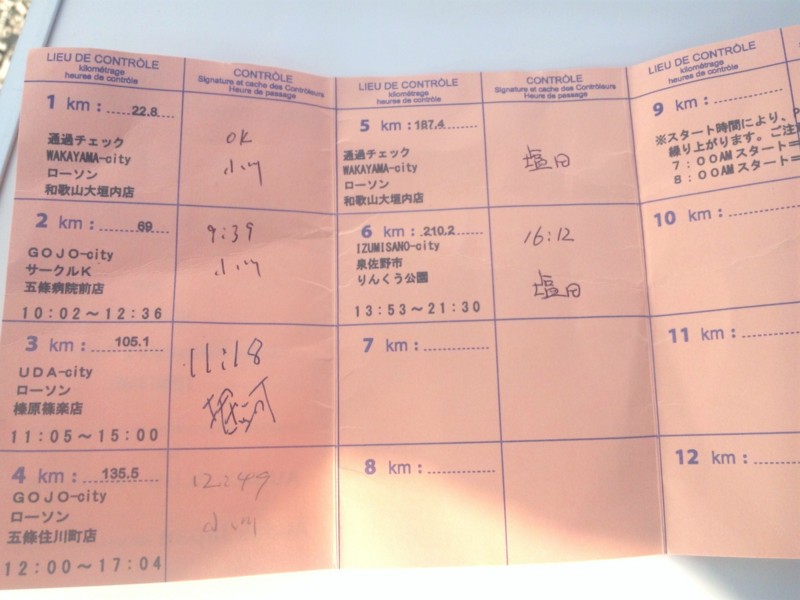 LIEU DE CONTRÔLE
kilométrage
heures de contrôle
CONTRÔLE
Signature et cache des Contrôleurs
Heure de passage
1 km : 22.8
通過チェック
WAKAYAMA-city
ローソン
和歌山大垣内店
OK
小川
2 km : 69
GOJO-city
サークルK
五條病院前店
10:02～12:36
9:39
小川
3 km : 105.1
UDA-city
ローソン
榛原篠楽店
11:05～15:00
11:18
4 km : 135.5
GOJO-city
ローソン
五條住川町店
12:00～17:04
12:49
小川
LIEU DE CONTRÔLE
kilométrage
heures de contrôle
CONTRÔLE
Signature et cache des Contrôleurs
Heure de passage
5 km : 187.4
通過チェック
WAKAYAMA-city
ローソン
和歌山大垣内店
塩田
6 km : 210.2
IZUMISANO-city
泉佐野市
りんくう公園
13:53～21:30
16:12
塩田
7 km :
8 km :
LIEU DE CONTRÔLE
kilométrage
heures de contrôle
9 km :
※スタート時間により、
繰り上がります。ご注
7:00AMスタート=
8:00AMスタート=
10 km :
11 km :
12 km :